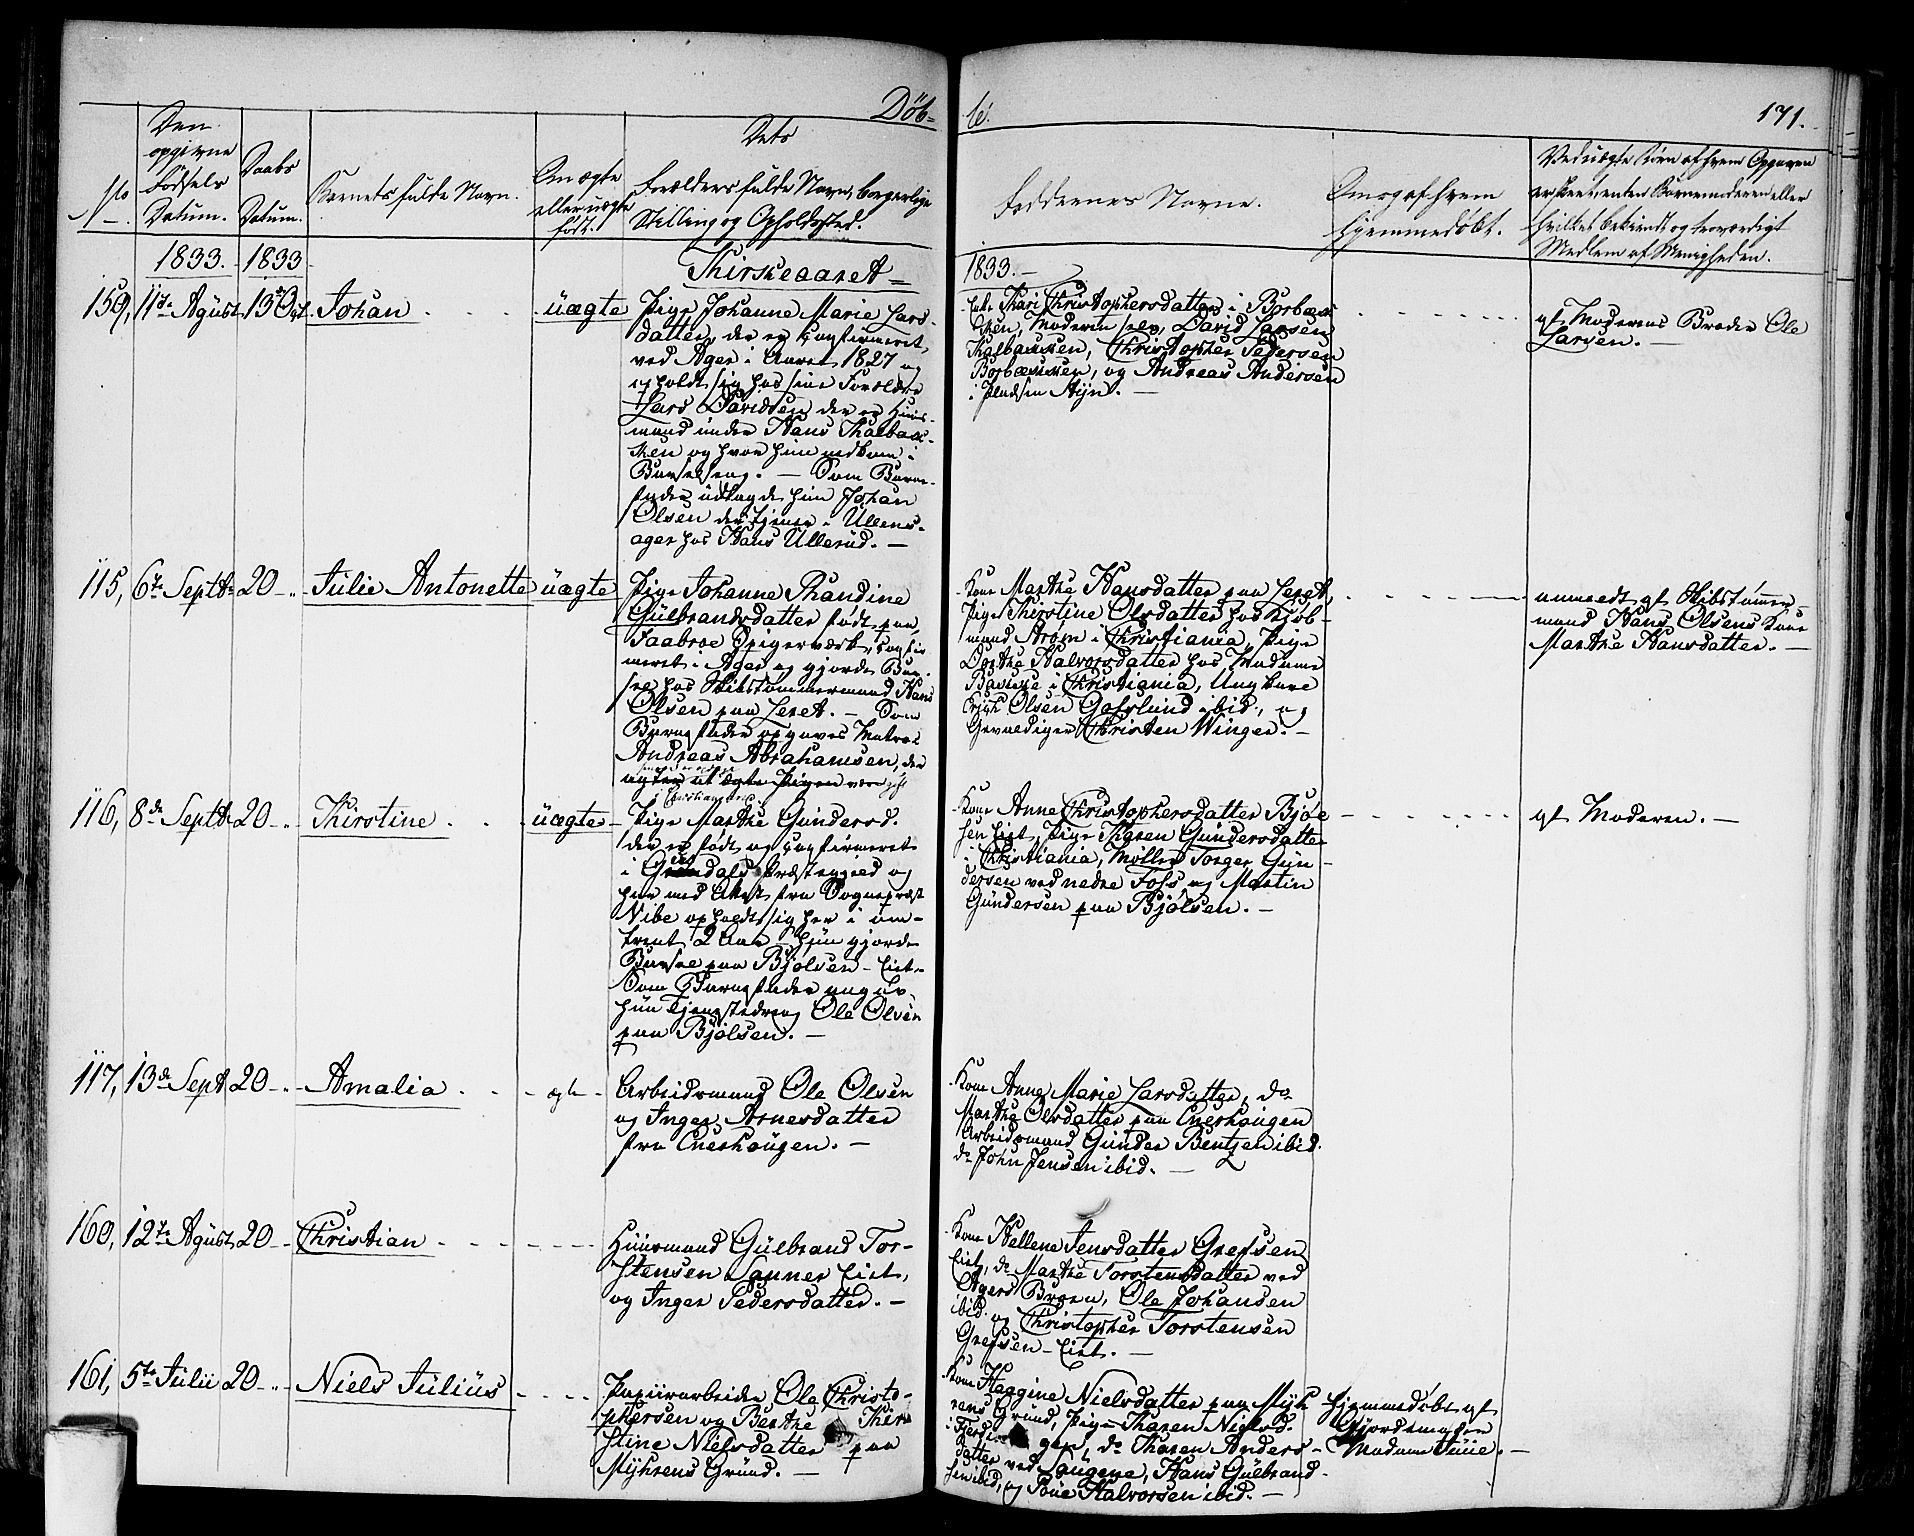 Döb-
te.
171.
No
Den
opgivne
Fødsels
Datum.
Daabs
Datum.
Barnets fulde Navn.
Om ægte
eller uægte
født.
Dets
Forældres fulde Navn, borgerlige
Stilling og Opholdssted.
Faddernes Navne.
Om og af hvem
hjemmedøbt.
Ved uægte Børn af hvem Opgaven
er skeet, enten Barnemoderen eller
hvilket bekiendt og troværdigt
Medlem af Menigheden.
1833.
1833
Thirskeaaret
1833.
159, 11te Agust 13de Oct Johan üægte
Pige Johanne Marie Lars-
datter, der er confirmeret
ved Ager i Aaret 1827 og
opholdt sig hos sine Forældre
Lars Davidsen der er Huus-
mand under Hans Thalbac-
ken og hvor hun nedkom i
Barselseng. — Som Barne-
fader udlagde hun Johan
Olsen der tjener i Ullens-
ager hos Hans Ullerud. —
Kari Christophersdatter i Borbæk
ken, Moderen selv, David Larsen
Thalbakken, Christopher Pedersen
Borbækken, og Andreas Andersen
i Pladsen Hyn. —
af Moderens Broder Ole
Larsen. —
115, 6te Septbr 20 - " Julie Antonette üægte
Pige Johanne Randine
Gülbrandsdatter født paa
Baabroe Spigerværk, confir
meret i Ager og gjorde Bar-
sel hos Skibstømmermand Hans
Olsen paa Leret. — Som
Barnefader opgaves Matros
Andreas Abrahamsen, der
agter at ægte Pigen
i Christiania
Kone Marthe Hansdatter paa Leret,
Pige Thirstine Olsdatter hos Kjøb-
mand Strøm i Christiania, Pige
Dorthe Halvorsdatter hos Madame
i Christiania, Ungkarl
Erich Olsen Gosslund ibid, og
Gevaldiger Christen Winger. —
anmeldt af Skibstømmer-
mand Hans Olsens Kone
Marthe Hansdatter. —
116, 8de Septbr 20 - " Thirstine üægte
Pige Marthe Gundersd.
der er født og confirmeret
i Præstegjeld og
her med Attest fra Sogneprest
Nibe opholdt sig her i om-
trent 2 Aar - hun gjorde
Barsel paa Bjølsen - Eiet-
Som Barnefader angav
hun Tjenestedreng Ole Olsen
paa Bjølsen. —
Kone Anne Christophersdatter Bjøl
sen Eiet, Pige Karen Gundersdatter
i Christiania, Møller Torger Gun-
dersen ved nedre Foss og Martin
Gundersen paa Bjølsen. —
af Moderen. —
117, 13de Sept 20 - " Amalia ægte
Arbeidsmand Ole Olsen
og Inger Arnesdatter
fra Enerhaugen. —
Kone Anne Marie Larsdatter, do
Marthe Olsdatter paa Enerhaugen
Arbeidsmand Gunder Bentzen ibid.
do John Jensen ibid. —
160, 12te Agust 20 - " Christian
Huusmand Gülbrand Tor-
stensen Sanner Eiet,
og Inger Pedersdatter. —
Kone Hellene Jensdatter Grefsen
Eiet, do Marthe Torstensdatter ved
Agers Broen, Ole Johansen
ibid. og Christopher Torstensen
Grefsen - Eiet. —
161, 5te Julii 20 - " Niels Julius
Papiirarbeider Ole Christo-
phersen og Berthe Thir
stine Nielsdatter paa
Myhrens Grund. —
Kone Haagine Nielsdatter paa Myh
rens Grund, Pige Karen Nielsd.
do Karen Anders-
datter ved Saugene, Hans Gülbrand-
sen ibid, og Povel Halvorsen ibid. —
Hjemmedøbt af
Gjordemoder
Madam Juue. —